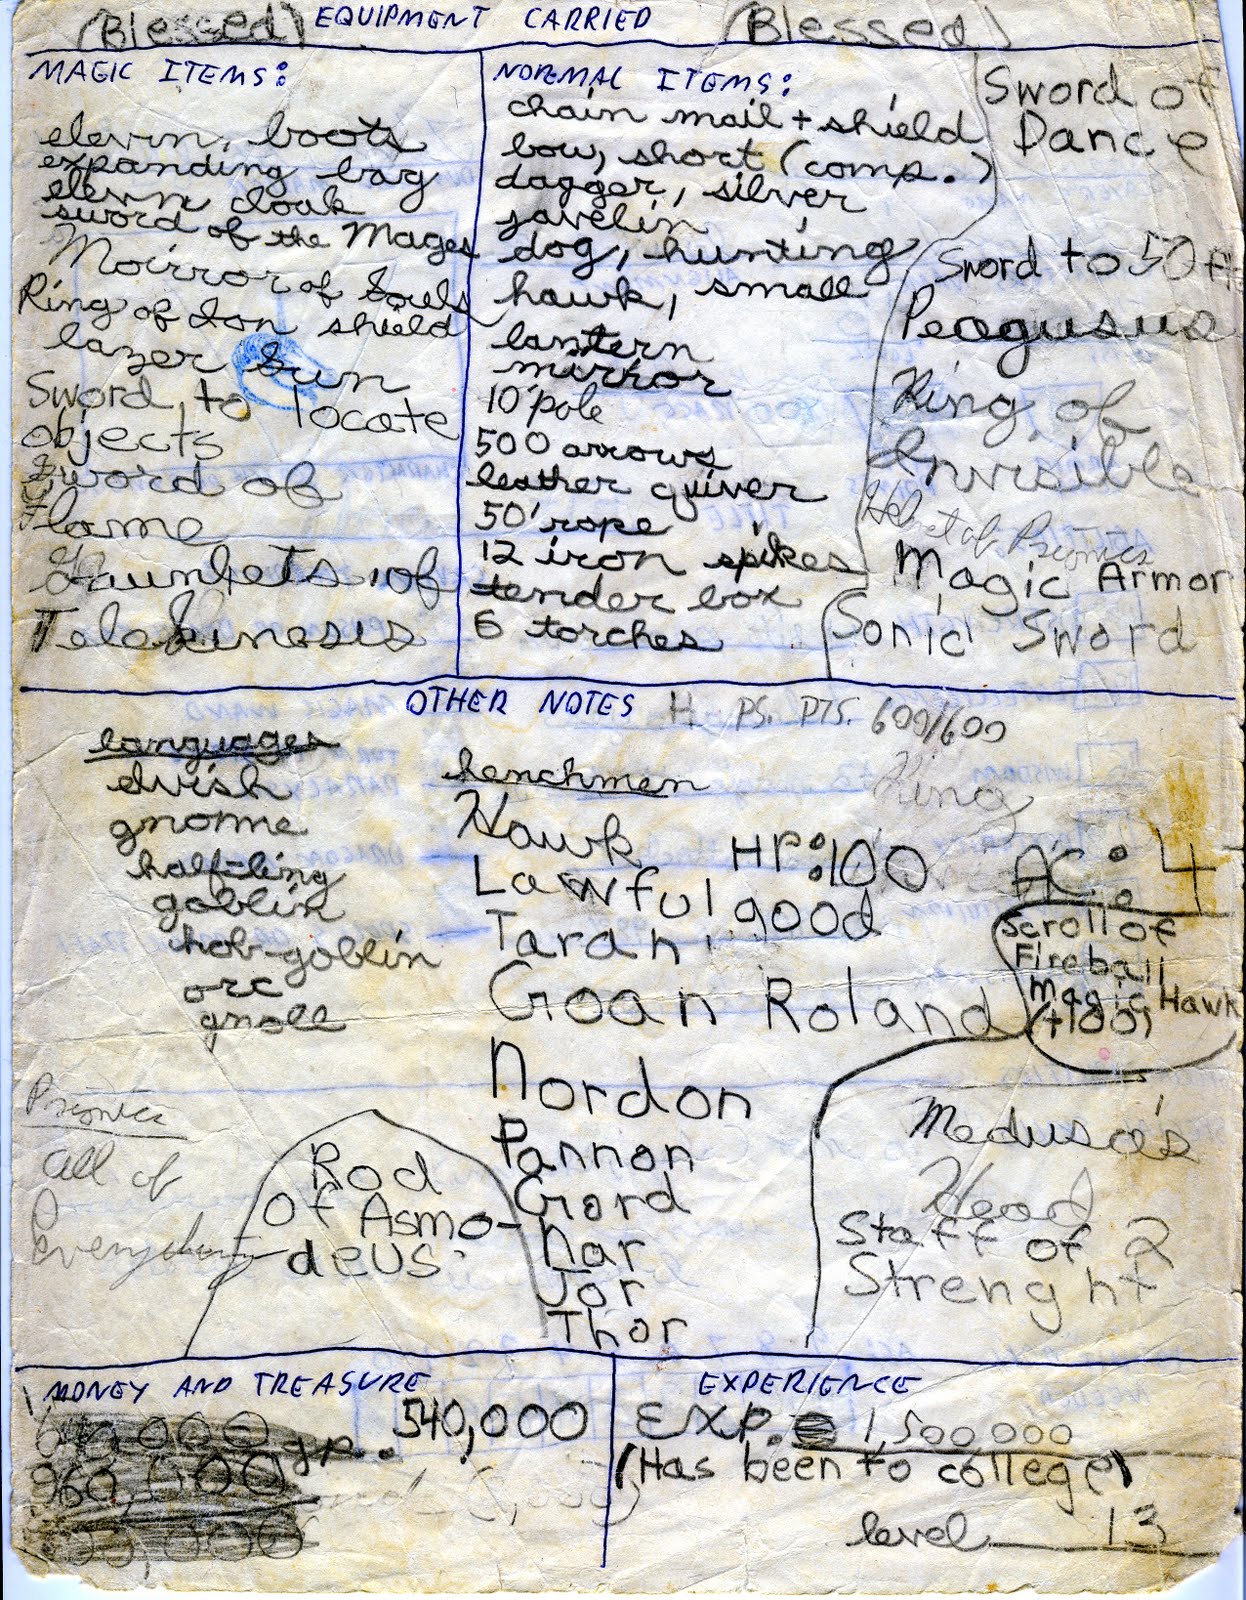 (Blessed) EQUIPMENT CARRIED (Blessed)
MAGIC ITEMS:
elevin boots
expanding bag
elevn cloak
sword of the Mages
Moirror of Souls
Ring of Ion shield
lazer Gun
Sword to locate
objects
Sword of
Flame
Gauntlets of
Telekinosis
NORMAL ITEMS:
chain mail + shield
bow, short (comp.)
dagger, silver
javelin
dog, hunting
hawk, small
lantern
mirror
10' pole
500 arrows
leather quiver
50' rope
12 iron spikes
tender box
6 torches
Sword of
Dance
Sword to 50 ft
Peagusus
Ring of
Invisible
Helmet of Psionics
Magic Armor
Sonic Sword
OTHER NOTES H PS. PTS. 600/600
languages
elvish
gnome
half-ling
goblin
hob-goblin
orc
gnoll
henchmen
King
Hawk HP:100 AC:4
Lawful good
Taran
Goan Roland
Nordon
Pannon
Gord
Nar
Jor
Thor
Scroll of
Fireball
Magic Hawk
(+100)
Psionics
all of
Everything
Rod
Of Asmo-
deus
Medusa's
Head
Staff of 2
Strenght
MONEY AND TREASURE
g.p. 540,000
960,000
EXPERIENCE
EXP. 1,500,000
(Has been to college)
level 13